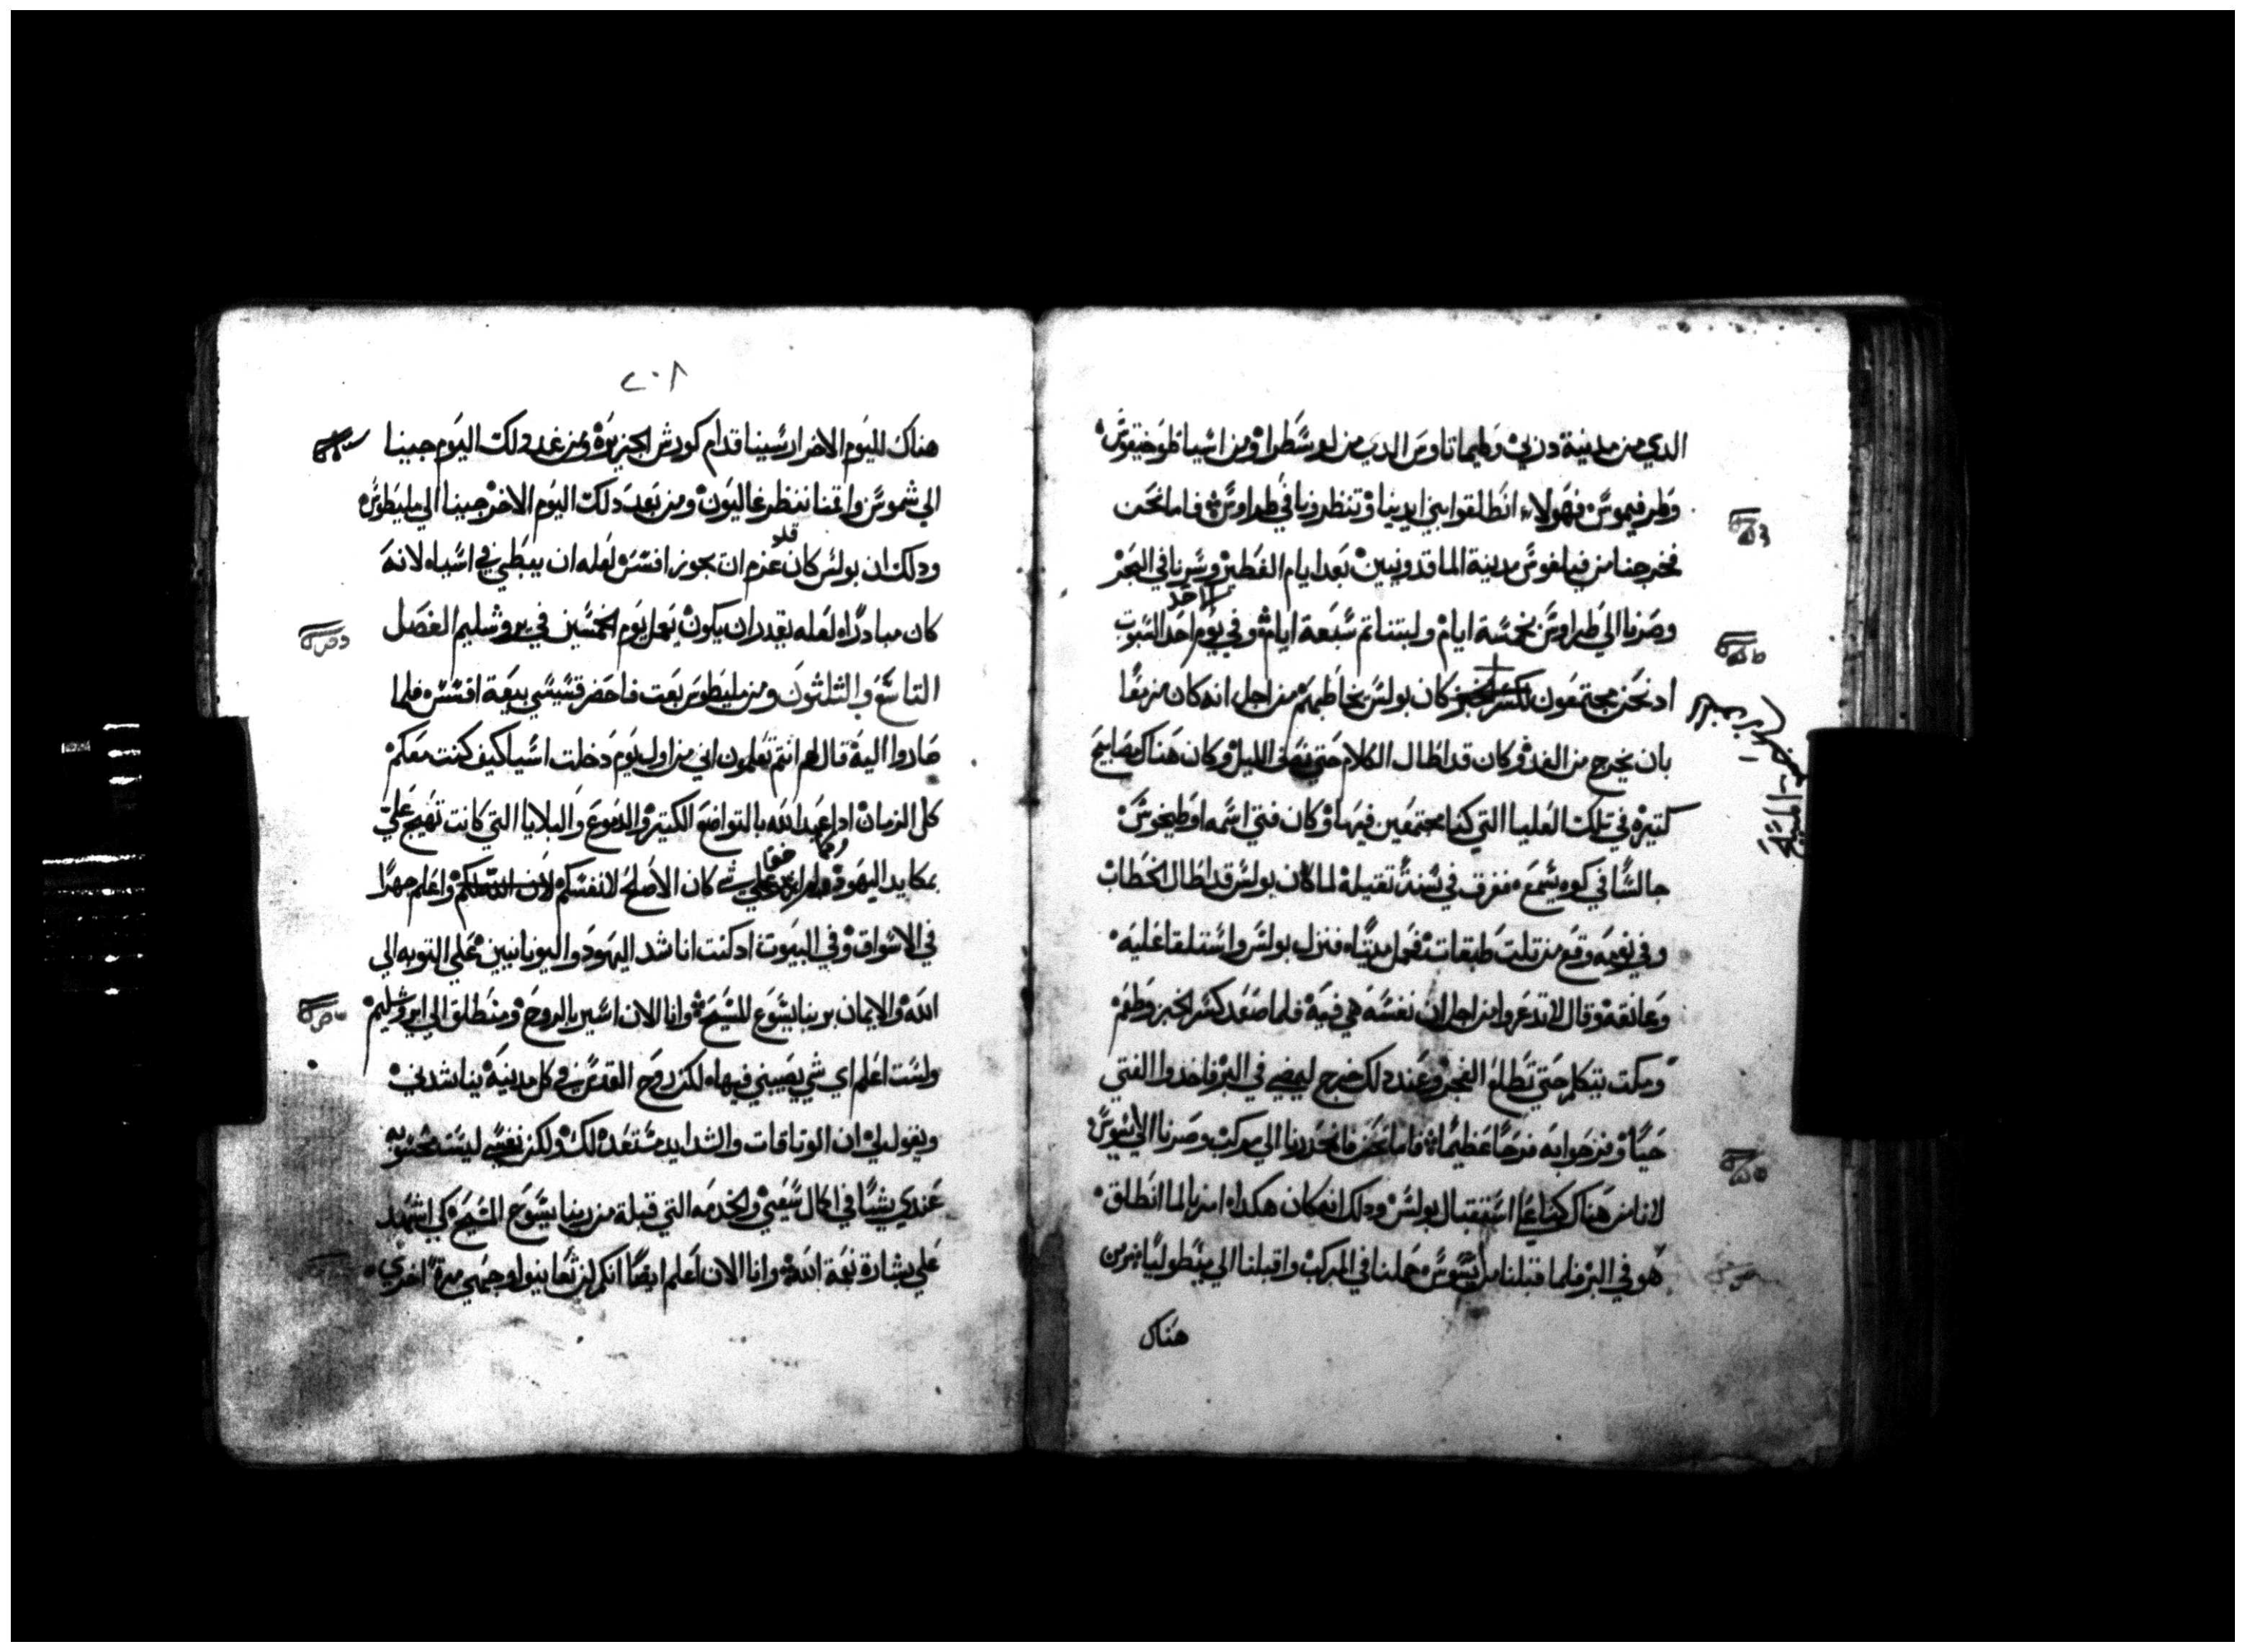 الدي من مدينة دربي وطيماتاوس الدي من لوسطرا ومن اسيا طوخيقوس
وطرفيموس فهولاء انطلقوا بين ايدينا وتنظرونا في طراوس فاما نحن
فخرجنا من فيلفوس مدينة الماقدونيين بعد ايام الفطير وسرنا في البحر
وصرنا الي طراوس بخمسة ايام ولبتنا تم سبعة ايام وفي يوم احد السبوت
الاحد
اد نحن مجتمعون لكسر الخبز كان بولس يخاطبهم من اجل انه كان مزمعا
بان يخرج من الغد وكان قد اطال الكلام حتي نصف الليل وكان هناك مصابيح
كتيرة في تلك العليا التي كنا مجتمعين فيها وكان فتي اسمه اوطيخوس
جالسا في كوه يسمع فغرق في سنة تقيلة لما كان بولس قد اطال الخطاب
وفي نومه وقع من تلت طبقات فحمل ميتا فنزل بولس واستلقا عليه
وعانقه وقال لا تدعروا من اجل ان نفسه هي فيه فلما صعد كسر الخبز وطعم
ومكت يتكلم حتي تطلع الفجر وعند دلك خرج ليمضي في البر فاخدوا الفتي
حيا وفرحوا به فرحا عظيما فاما نحن فانحدرنا الي مركب وصرنا الي اسوس
لانا من هناك كنا علي استقبال بولس ودلك انه كان هكدا امرنا لما انطلق
هو في البر فلما قبلنا من اسوس حملنا في المركب واقبلنا الي ميطوليا ومن
هناك
المسيح
٢٠٨
هناك لليوم الاخر ارسينا قدام كورش الجزيرة ومن غد دلك اليوم جينا
الي شموس واقمنا ننظر غاليون ومن بعد دلك اليوم الاخر جينا الي مليطوس
ودلك ان بولس كان قد عزم ان يجوز افسس لعله ان يبطي في اسيا لانه
كان مبادرا لعله يقدر ان يكون يعمل يوم الخمسين في يروشليم الفصل
التاسع والتلتون ومن مليطوس بعت فاحضر قسيسي بيعة افسس فلما
صاروا اليه قال لهم انتم تعلمون اني من اول يوم دخلت اسيا كيف كنت معكم
كل الزمان اد اعبد الله بالتواضع الكتير والدموع والبلايا التي كانت تهيج علي
بمكايد اليهود كان الاصلح لانفسكم واعلم جهرا
في الاسواق وفي البيوت اد كنت اناشد اليهود واليونانيين علي التوبه الي
الله والايمان بربنا يسوع المسيح وانا الان اسير بالروح ومنطلق الي ايروشليم
ولست اعلم اي شي يصيبني فيها لكن روح القدس في كل مدينة يناشدني
ويقول لي ان الوتاقات والشدايد مستعد لك ولكن نفسي ليست محسوبه
عندي شيا في اكمال سعيي والخدمه التي قبلة من ربنا يسوع المسيح كي اشهد
علي بشارة نعمة الله وانا الان اعلم ايضا انكم لن تعاينوا وجهي مرة اخري